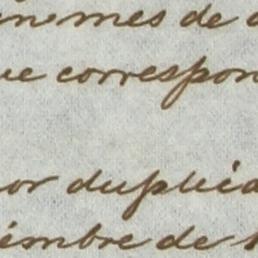 mes de
correspon
or duplica
imbre de